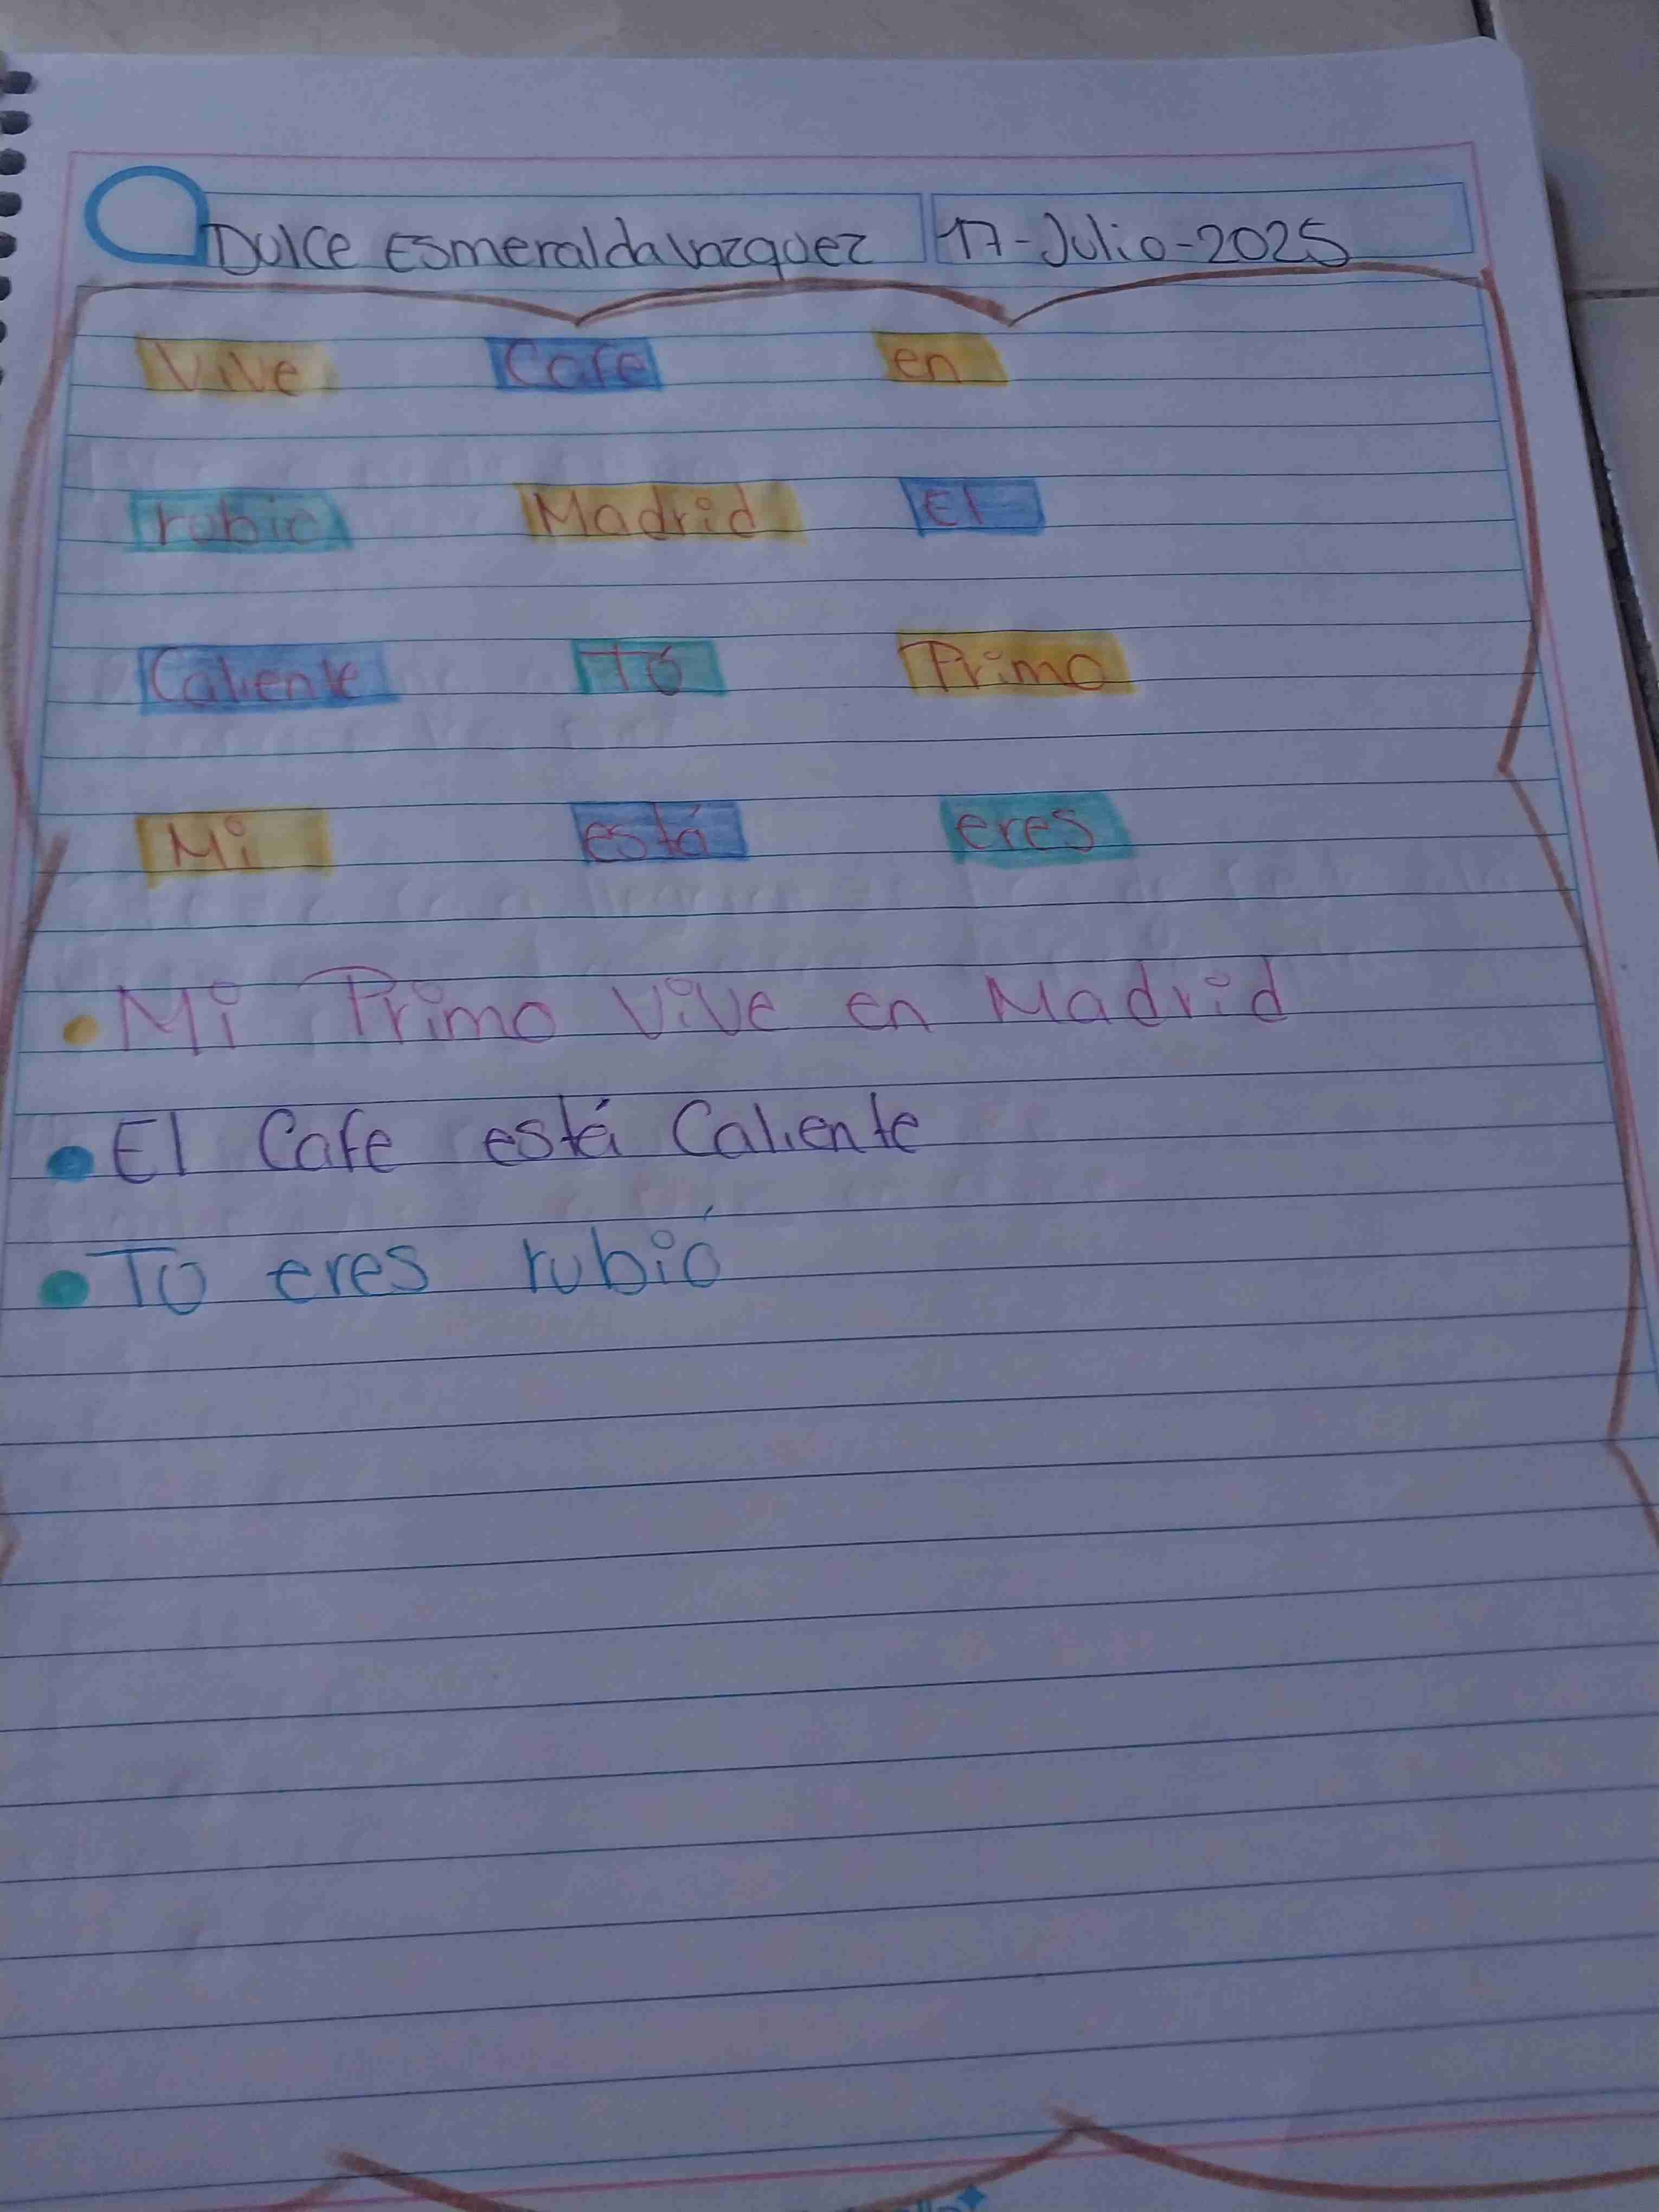 Dulce Esmeralda Vazquez 17-Julio-2025
Vive Cafe en
rubio Madrid El
Caliente Tú Primo
Mi está eres
• Mi Primo Vive en Madrid
• El Cafe está Caliente
• Tú eres rubio